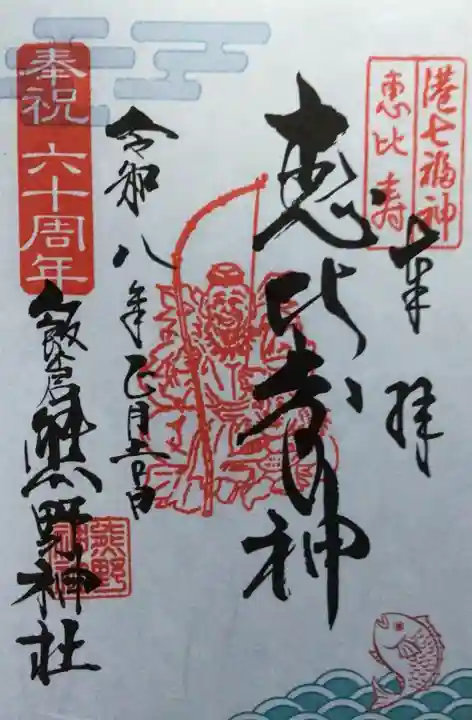 港七福神
恵比寿
奉拝
恵比寿神
令和八年正月五日
奉祝 六十周年
飯倉熊野神社
熊野